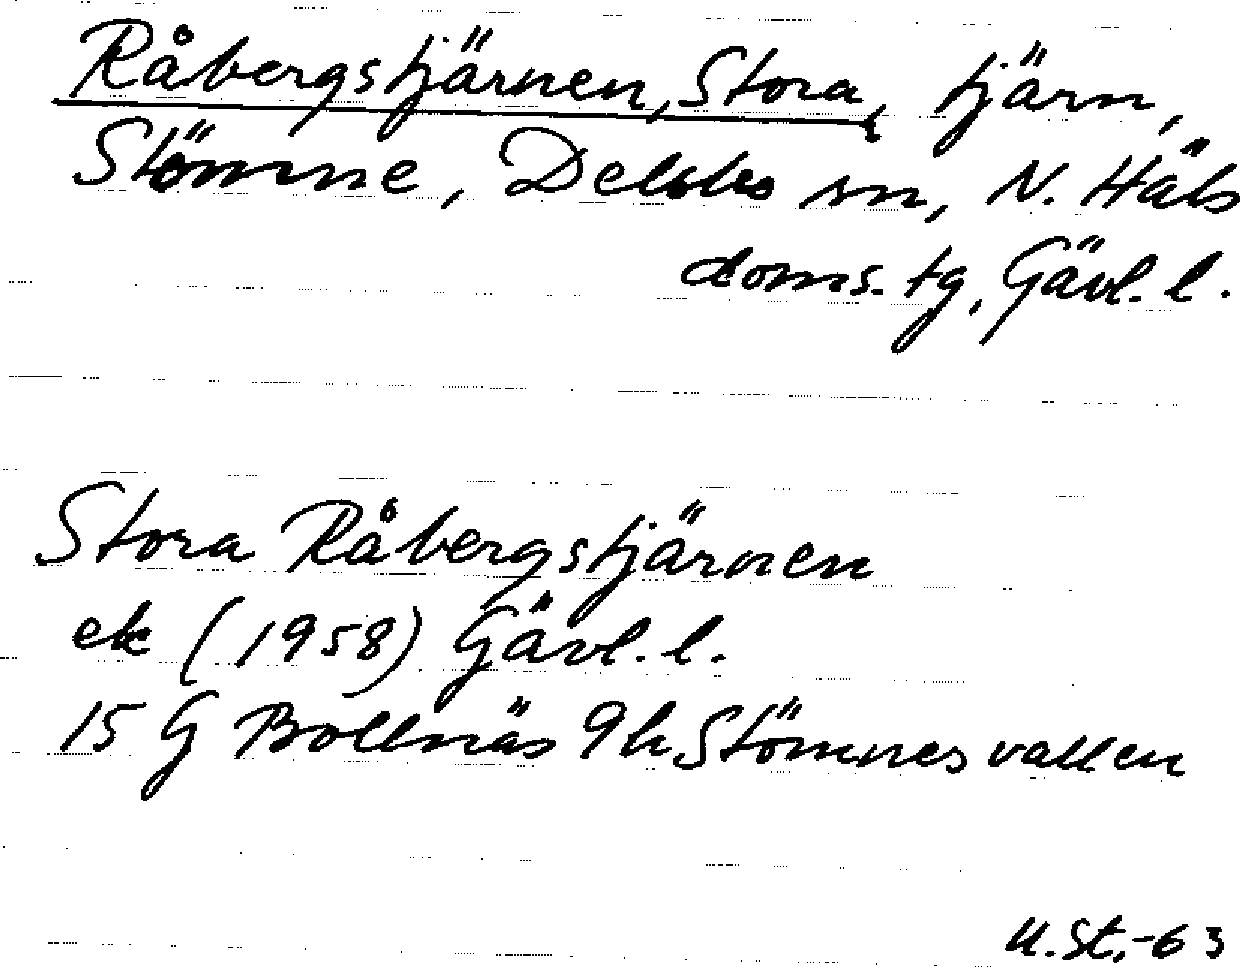 Råbergstjärnen, Stora, tjärn,
Stömne, Delsbo sn, N. Häls
doms. tg, Gävl. l.
Stora Råbergstjärnen
ek (1958) Gävl. l.
15 G Bollnäs 9h Stömnesvallen
U.St,-63